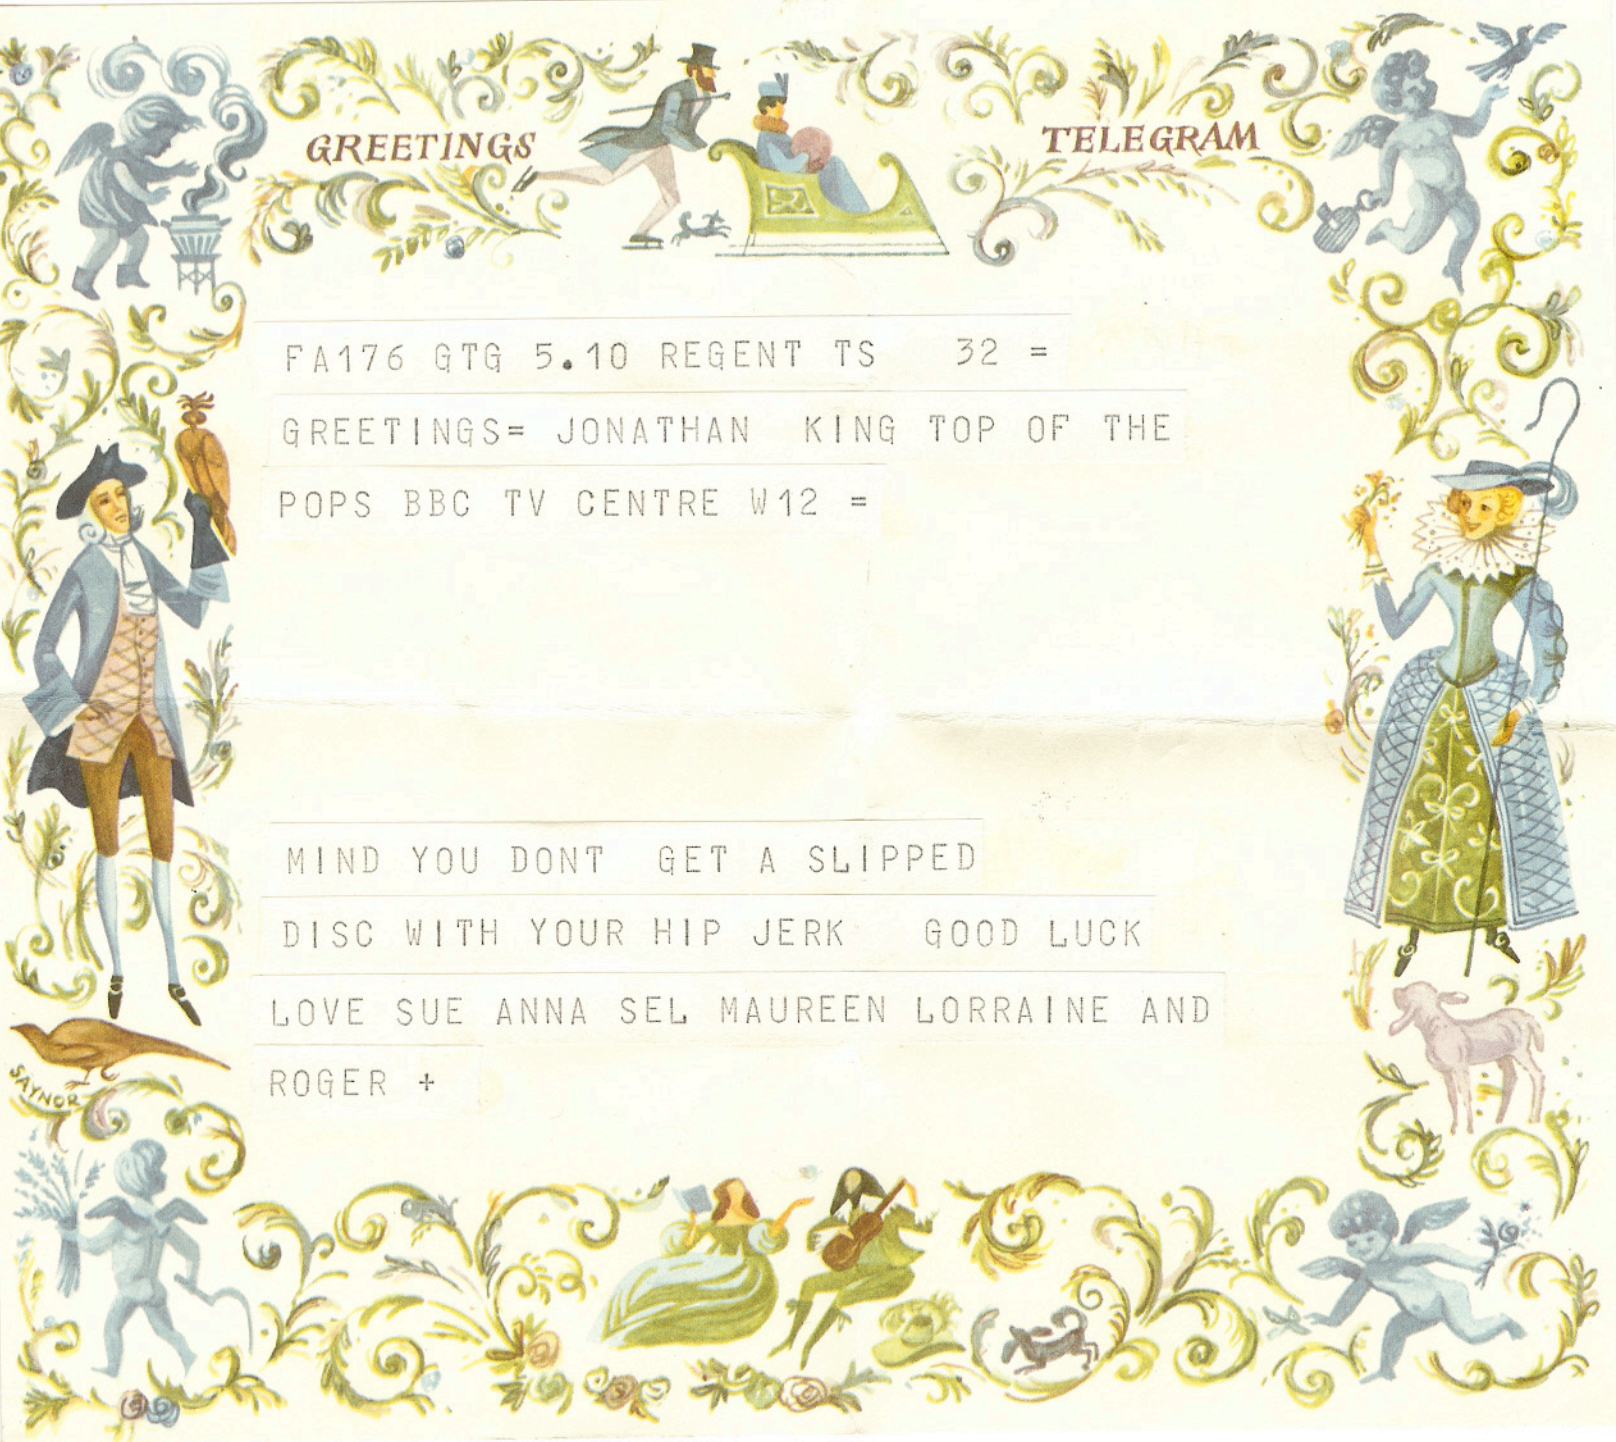 GREETINGS TELEGRAM
FA176 GTG 5.10 REGENT TS 32 =
GREETINGS= JONATHAN KING TOP OF THE
POPS BBC TV CENTRE W12 =
MIND YOU DONT GET A SLIPPED
DISC WITH YOUR HIP JERK GOOD LUCK
LOVE SUE ANNA SEL MAUREEN LORRAINE AND
ROGER +
SAYNOR